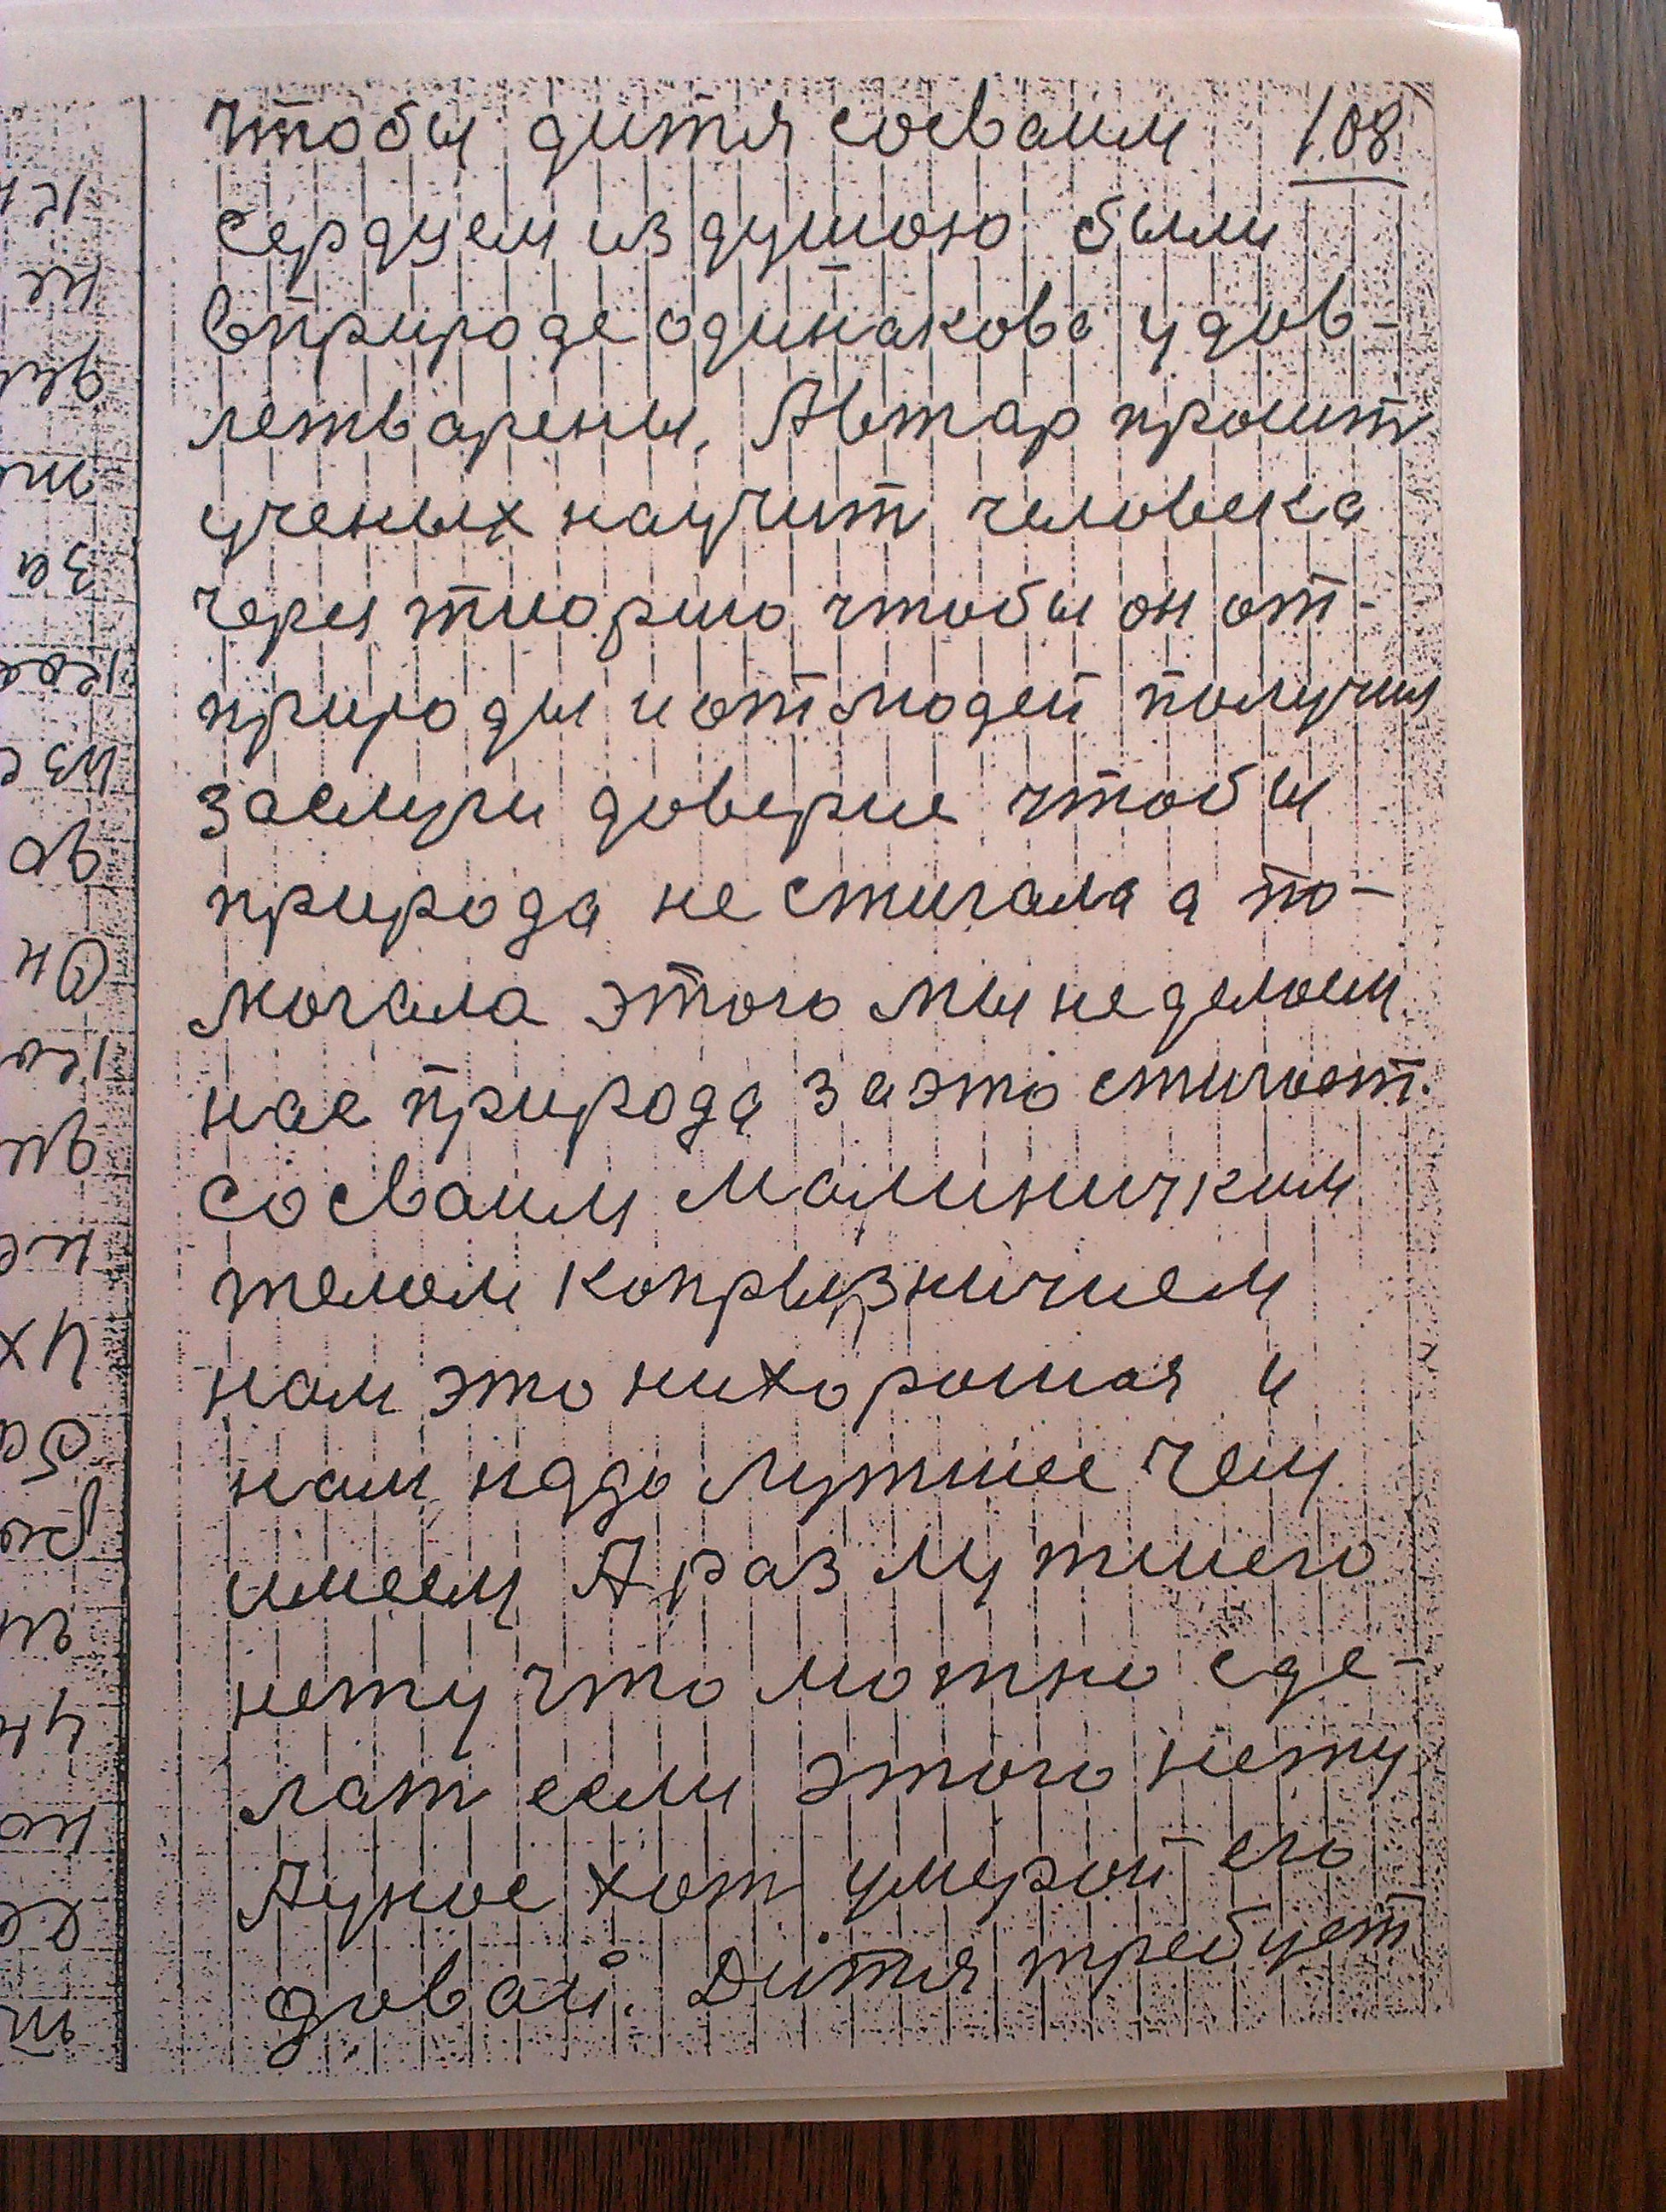 чтобы дитя сосваим 108
сердцем из душою были
вприроде одинаково удов-
летварены. Автар просит
ученых научит человека
через тиорию чтобы он от-
природы и от людей получил
заслуги доверие чтобы
природа не стигала а по-
могала этого мы не делаем
нас природа за это стигает.
сосваим малиничким
телом капрызничием
нам это нихорошая и
нам надо лутшее чем
имеем А раз лутшего
нету что мотно сде-
лат если этого нету
Ауное хот умерай его
довай. Дитя требует